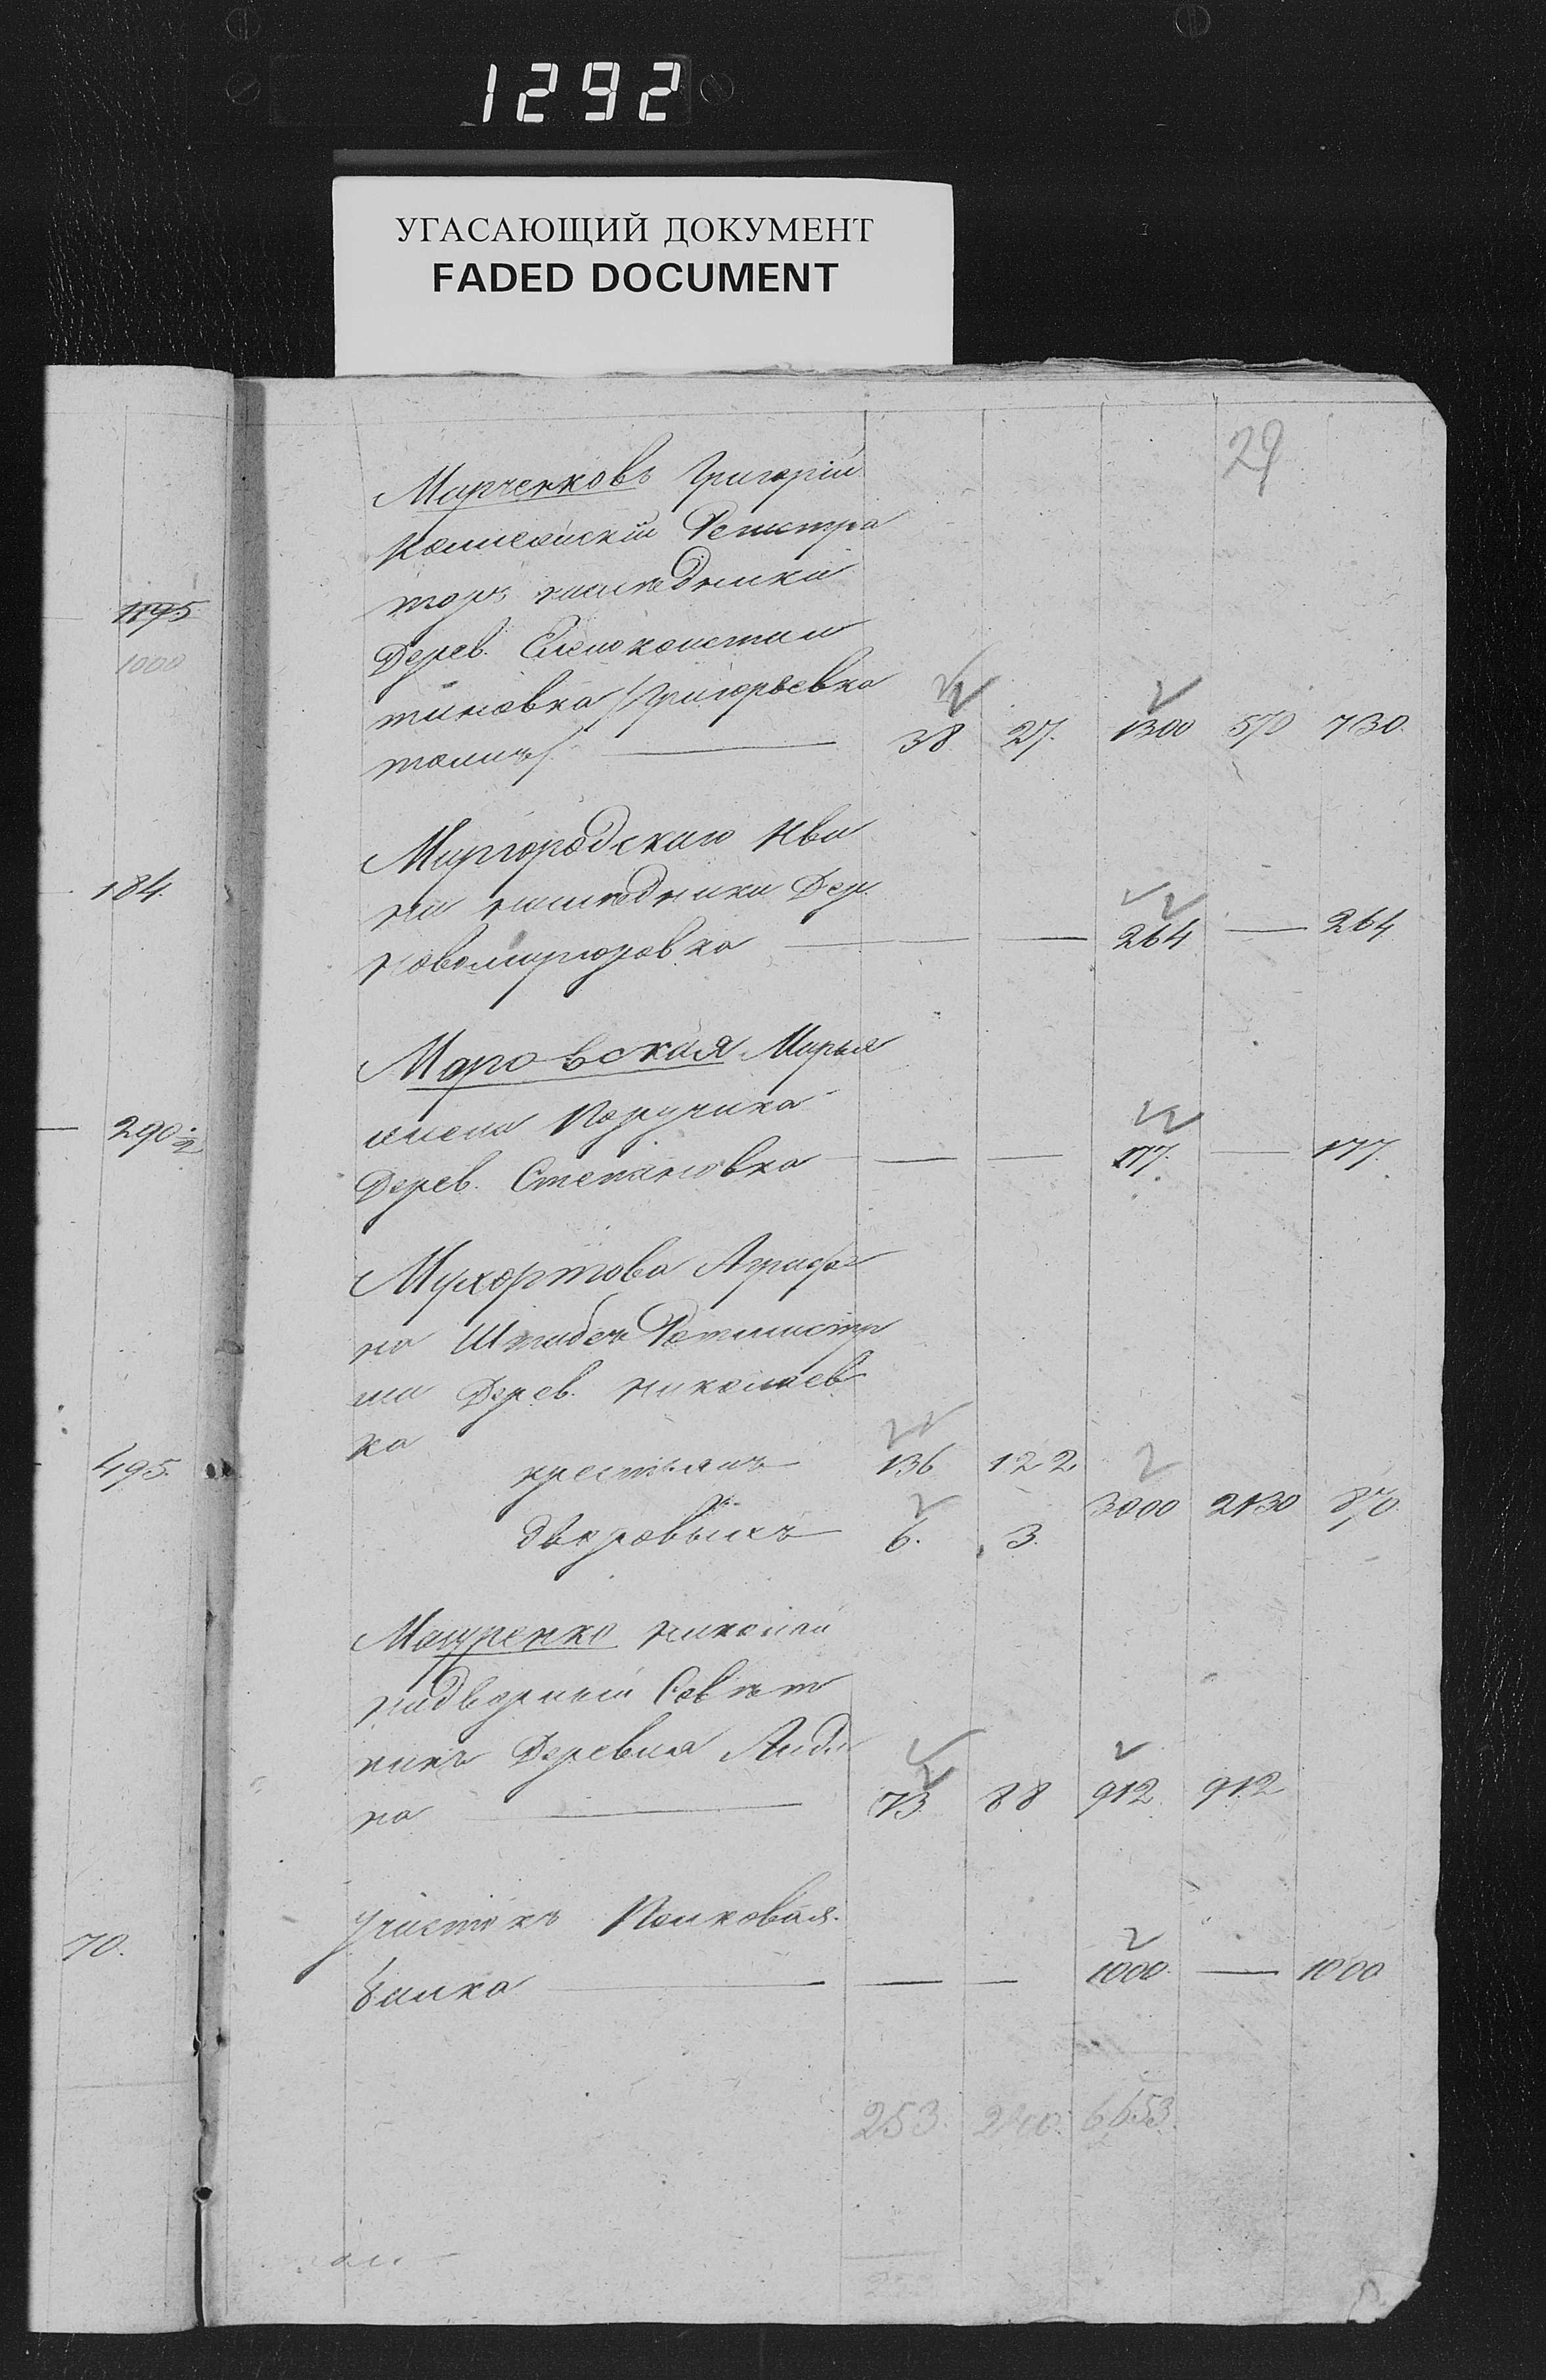 1292
УГАСАЮЩИЙ ДОКУМЕНТ
FADED DOCUMENT
29
1195
1000
184.
290 1/2
495.
70.
Марченковъ Григорій
Коллежскій Регистра
торъ наследники
Дерев. Еленоконстан
тиновка /Григорьевка
тожъ/ — 38 27. 1300 570 730.
Миргородскаго Ива
на наследники Дер.
Новомиргоровка — — — 264 — 264
Маровская Марья
жена Поручика
Дерев. Степановка — — 177. — 177.
Мухортова Аграфе
на Штабсъ Ротмистр
ша Дерев. Николаев
ка
крестьянъ 136 122
3000 2130 870.
дворовыхъ 6. 3.
Мацренко Николай
Надворный Совѣт
никъ Деревня Лиди
на — 73 88 912 912
Участокъ Полковая
балка — — — 1000 — 1000
253. 240. 6653.